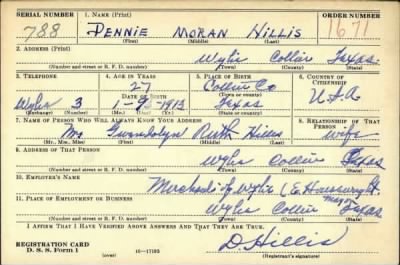 SERIAL NUMBER 1. NAME (Print) ORDER NUMBER
788 DENNIE MORAN HILLIS 1671
(First) (Middle) (Last)
2. ADDRESS (Print)
Wylie Collin Texas
(Number and street or R. F. D. number) (Town) (County) (State)
3. TELEPHONE 4. AGE IN YEARS 5. PLACE OF BIRTH 6. COUNTRY OF CITIZENSHIP
27 Collin Co
DATE OF BIRTH (Town or county)
Wylie 3 1-9-1913 Texas U.S.A
(Exchange) (Number) (Mo.) (Day) (Yr.) (State or country)
7. NAME OF PERSON WHO WILL ALWAYS KNOW YOUR ADDRESS 8. RELATIONSHIP OF THAT PERSON
Mrs Gwendolyn Ruth Hillis wife
(Mr., Mrs., Miss) (First) (Middle) (Last)
9. ADDRESS OF THAT PERSON
Wylie Collin Texas
(Number and street or R. F. D. number) (Town) (County) (State)
10. EMPLOYER'S NAME
of Wylie
11. PLACE OF EMPLOYMENT OR BUSINESS
Wylie Collin Texas
(Number and street or R. F. D. number) (Town) (County) (State)
I AFFIRM THAT I HAVE VERIFIED ABOVE ANSWERS AND THAT THEY ARE TRUE.
D. Hillis
REGISTRATION CARD
D. S. S. Form 1 (over) 16—17105 (Registrant's signature)